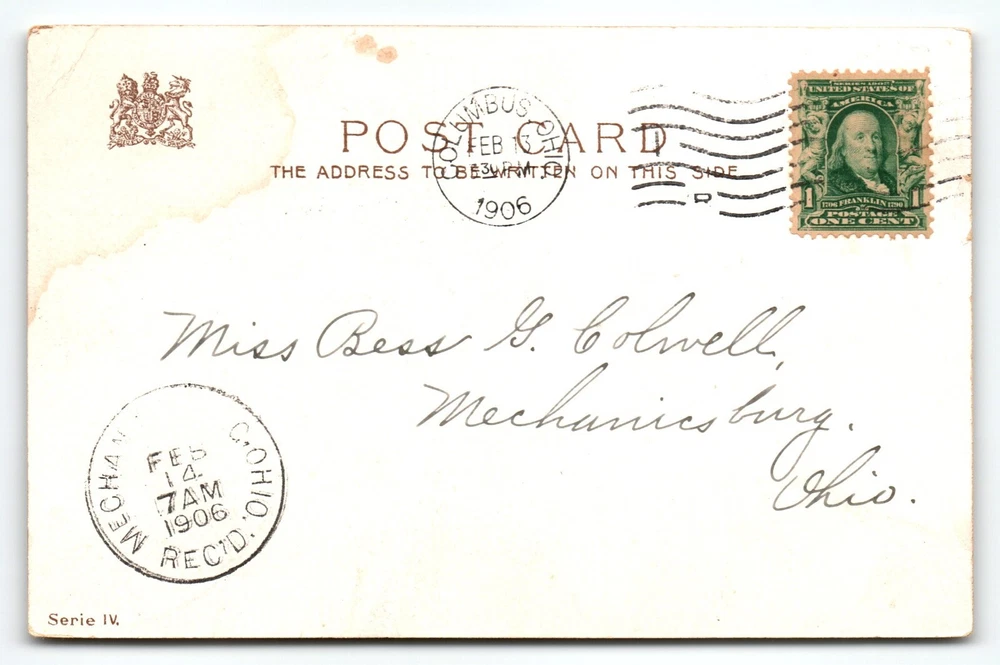 POST CARD
THE ADDRESS TO BE WRITTEN ON THIS SIDE
COLUMBUS, OHIO
FEB 13
PM
1906
SERIES 1902
UNITED STATES OF
AMERICA
1706 FRANKLIN 1790
POSTAGE
1 ONE CENT 1
Miss Bess G. Colwell,
Mechanicsburg.
Ohio.
MECHAN G. OHIO.
FEB
14
7 AM
1906
REC'D.
Serie IV.